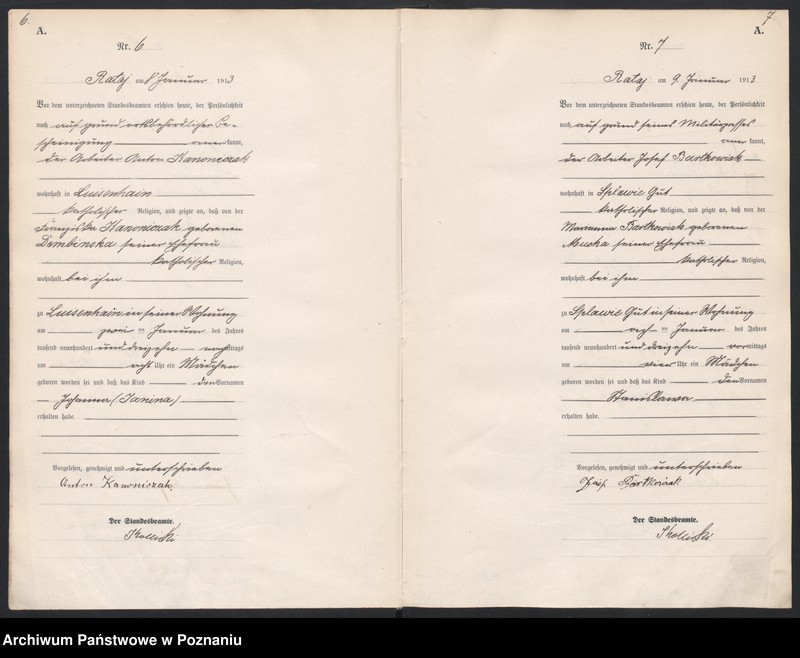 6.
A.
Nr. 6
Rataj am 8 Januar 1913
Vor dem unterzeichneten Standesbeamten erschien heute, der Persönlichkeit
nach auf Grund ortsbehördlicher Be-
scheinigung anerkannt,
der Arbeiter Anton Kanoniczak
wohnhaft in Luisenhain
katholischer Religion, und zeigte an, daß von der
Franziska Kanoniczak geborenen
Dembinska seiner Ehefrau
katholischer Religion,
wohnhaft bei ihm
zu Luisenhain in seiner Wohnung
am zwei ten Januar des Jahres
tausend neunhundert und dreizehn nachmittags
um acht Uhr ein Mädchen
geboren worden sei und daß das Kind den Vornamen
Johanna (Janina)
erhalten habe.
Vorgelesen, genehmigt und unterschrieben
Anton Kanoniczak.
Der Standesbeamte.
7.
A.
Nr. 7
Rataj am 9. Januar 1913
Vor dem unterzeichneten Standesbeamten erschien heute, der Persönlichkeit
nach auf Grund seines Militärpasses
anerkannt,
der Arbeiter Josef Bartkowiak
wohnhaft in Splawie Gut
katholischer Religion, und zeigte an, daß von der
Marianna Bartkowiak geborenen
Mucha seiner Ehefrau
katholischer Religion,
wohnhaft bei ihm
zu Splawie Gut in seiner Wohnung
am ten Januar des Jahres
tausend neunhundert und dreizehn vormittags
um vier Uhr ein Mädchen
geboren worden sei und daß das Kind den Vornamen
Stanislawa
erhalten habe.
Vorgelesen, genehmigt und unterschrieben
Bartkowiak
Der Standesbeamte.
Archiwum Państwowe w Poznaniu